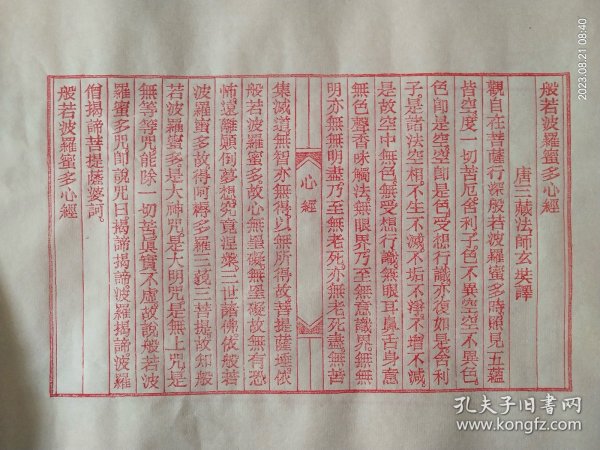 般若波羅蜜多心經
唐三藏法師玄奘譯
觀自在菩薩行深般若波羅蜜多時照見五蘊
皆空度一切苦厄舍利子色不異空空不異色
色卽是空空卽是色受想行識亦復如是舍利
子是諸法空相不生不滅不垢不淨不增不減
是故空中無色無受想行識無眼耳鼻舌身意
無色聲香味觸法無眼界乃至無意識界無無
明亦無無明盡乃至無老死亦無老死盡無苦
心經
集滅道無智亦無得以無所得故菩提薩埵依
般若波羅蜜多故心無罣礙無罣礙故無有恐
怖遠離顛倒夢想究竟涅槃三世諸佛依般若
波羅蜜多故得阿耨多羅三藐三菩提故知般
若波羅蜜多是大神咒是大明咒是無上咒是
無等等咒能除一切苦眞實不虛故說般若波
羅蜜多咒卽說咒曰揭諦揭諦波羅揭諦波羅
僧揭諦菩提薩婆訶
般若波羅蜜多心經
2023.08.21 08:40
孔夫子旧书网
www.kongfz.com